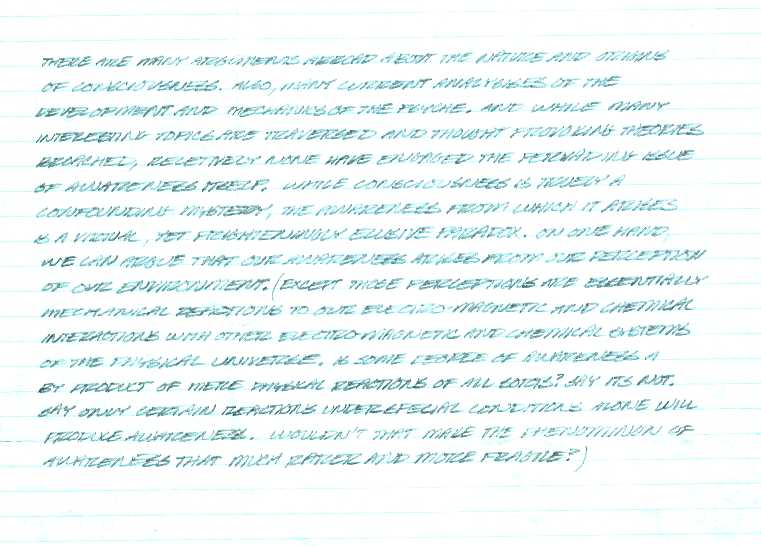 THERE ARE MANY ARGUMENTS ABROAD ABOUT THE NATURE AND ORIGINS
OF CONSCIOUSNESS. ALSO, MANY CURRENT ANALYSISES OF THE
DEVELOPMENT AND MECHANICS OF THE PSYCHE. AND WHILE MANY
INTERESTING TOPICS ARE TRAVERSED AND THOUGHT PROVOKING THEORIES
BROACHED, RELETIVELY NONE HAVE ENGAGED THE PERVADING ISSUE
OF AWARENESS ITSELF. WHILE CONSCIOUSNESS IS TRUELY A
CONFOUNDING MYSTERY, THE AWARENESS FROM WHICH IT ARISES
IS A VIRTUAL, YET FRIGHTENINGLY ELUSIVE PARADOX. ON ONE HAND,
WE CAN ARGUE THAT OUR AWARENESS ARISES FROM OUR PERCEPTION
OF OUR ENVIRONMENT. (EXCEPT THOSE PERCEPTIONS ARE ESSENTIALLY
MECHANICAL REACTIONS TO OUR ELECTRO-MAGNETIC AND CHEMICAL
INTERACTIONS WITH OTHER ELECTRO-MAGNETIC AND CHEMICAL SYSTEMS
OF THE PHYSICAL UNIVERSE. IS SOME DEGREE OF AWARENESS A
BY PRODUCT OF MERE PHYSICAL REACTIONS OF ALL SORTS? SAY ITS NOT.
SAY ONLY CERTAIN REACTIONS UNDER SPECIAL CONDITIONS ALONE WILL
PRODUCE AWARENESS. WOULDN'T THAT MAKE THE PHENOMINON OF
AWARENESS THAT MUCH RARER AND MORE FRAGILE?)